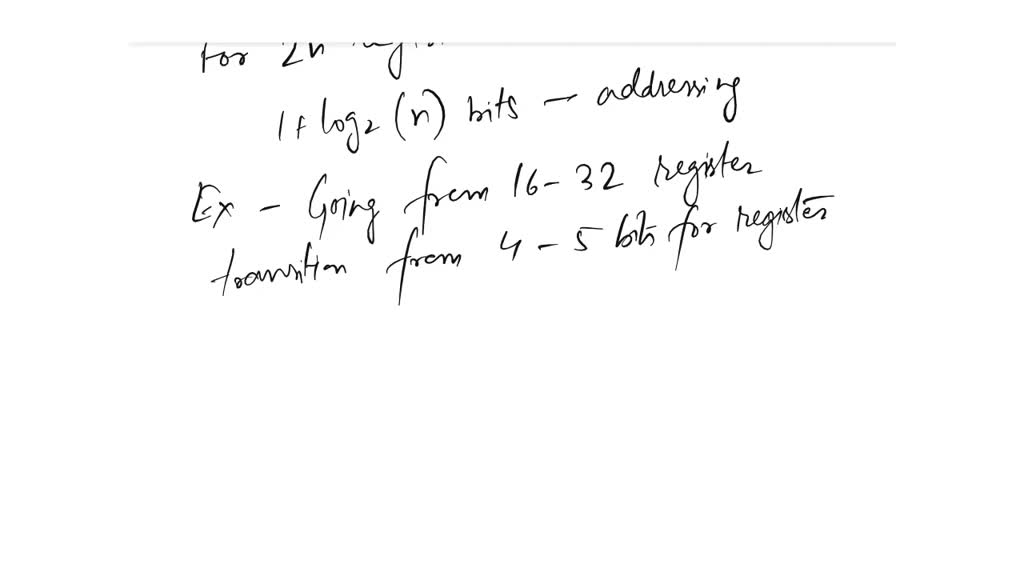 for 2n
1+ log2 (n) bits - addressing
Ex - Going from 16-32 register
transition from 4-5 bits for register